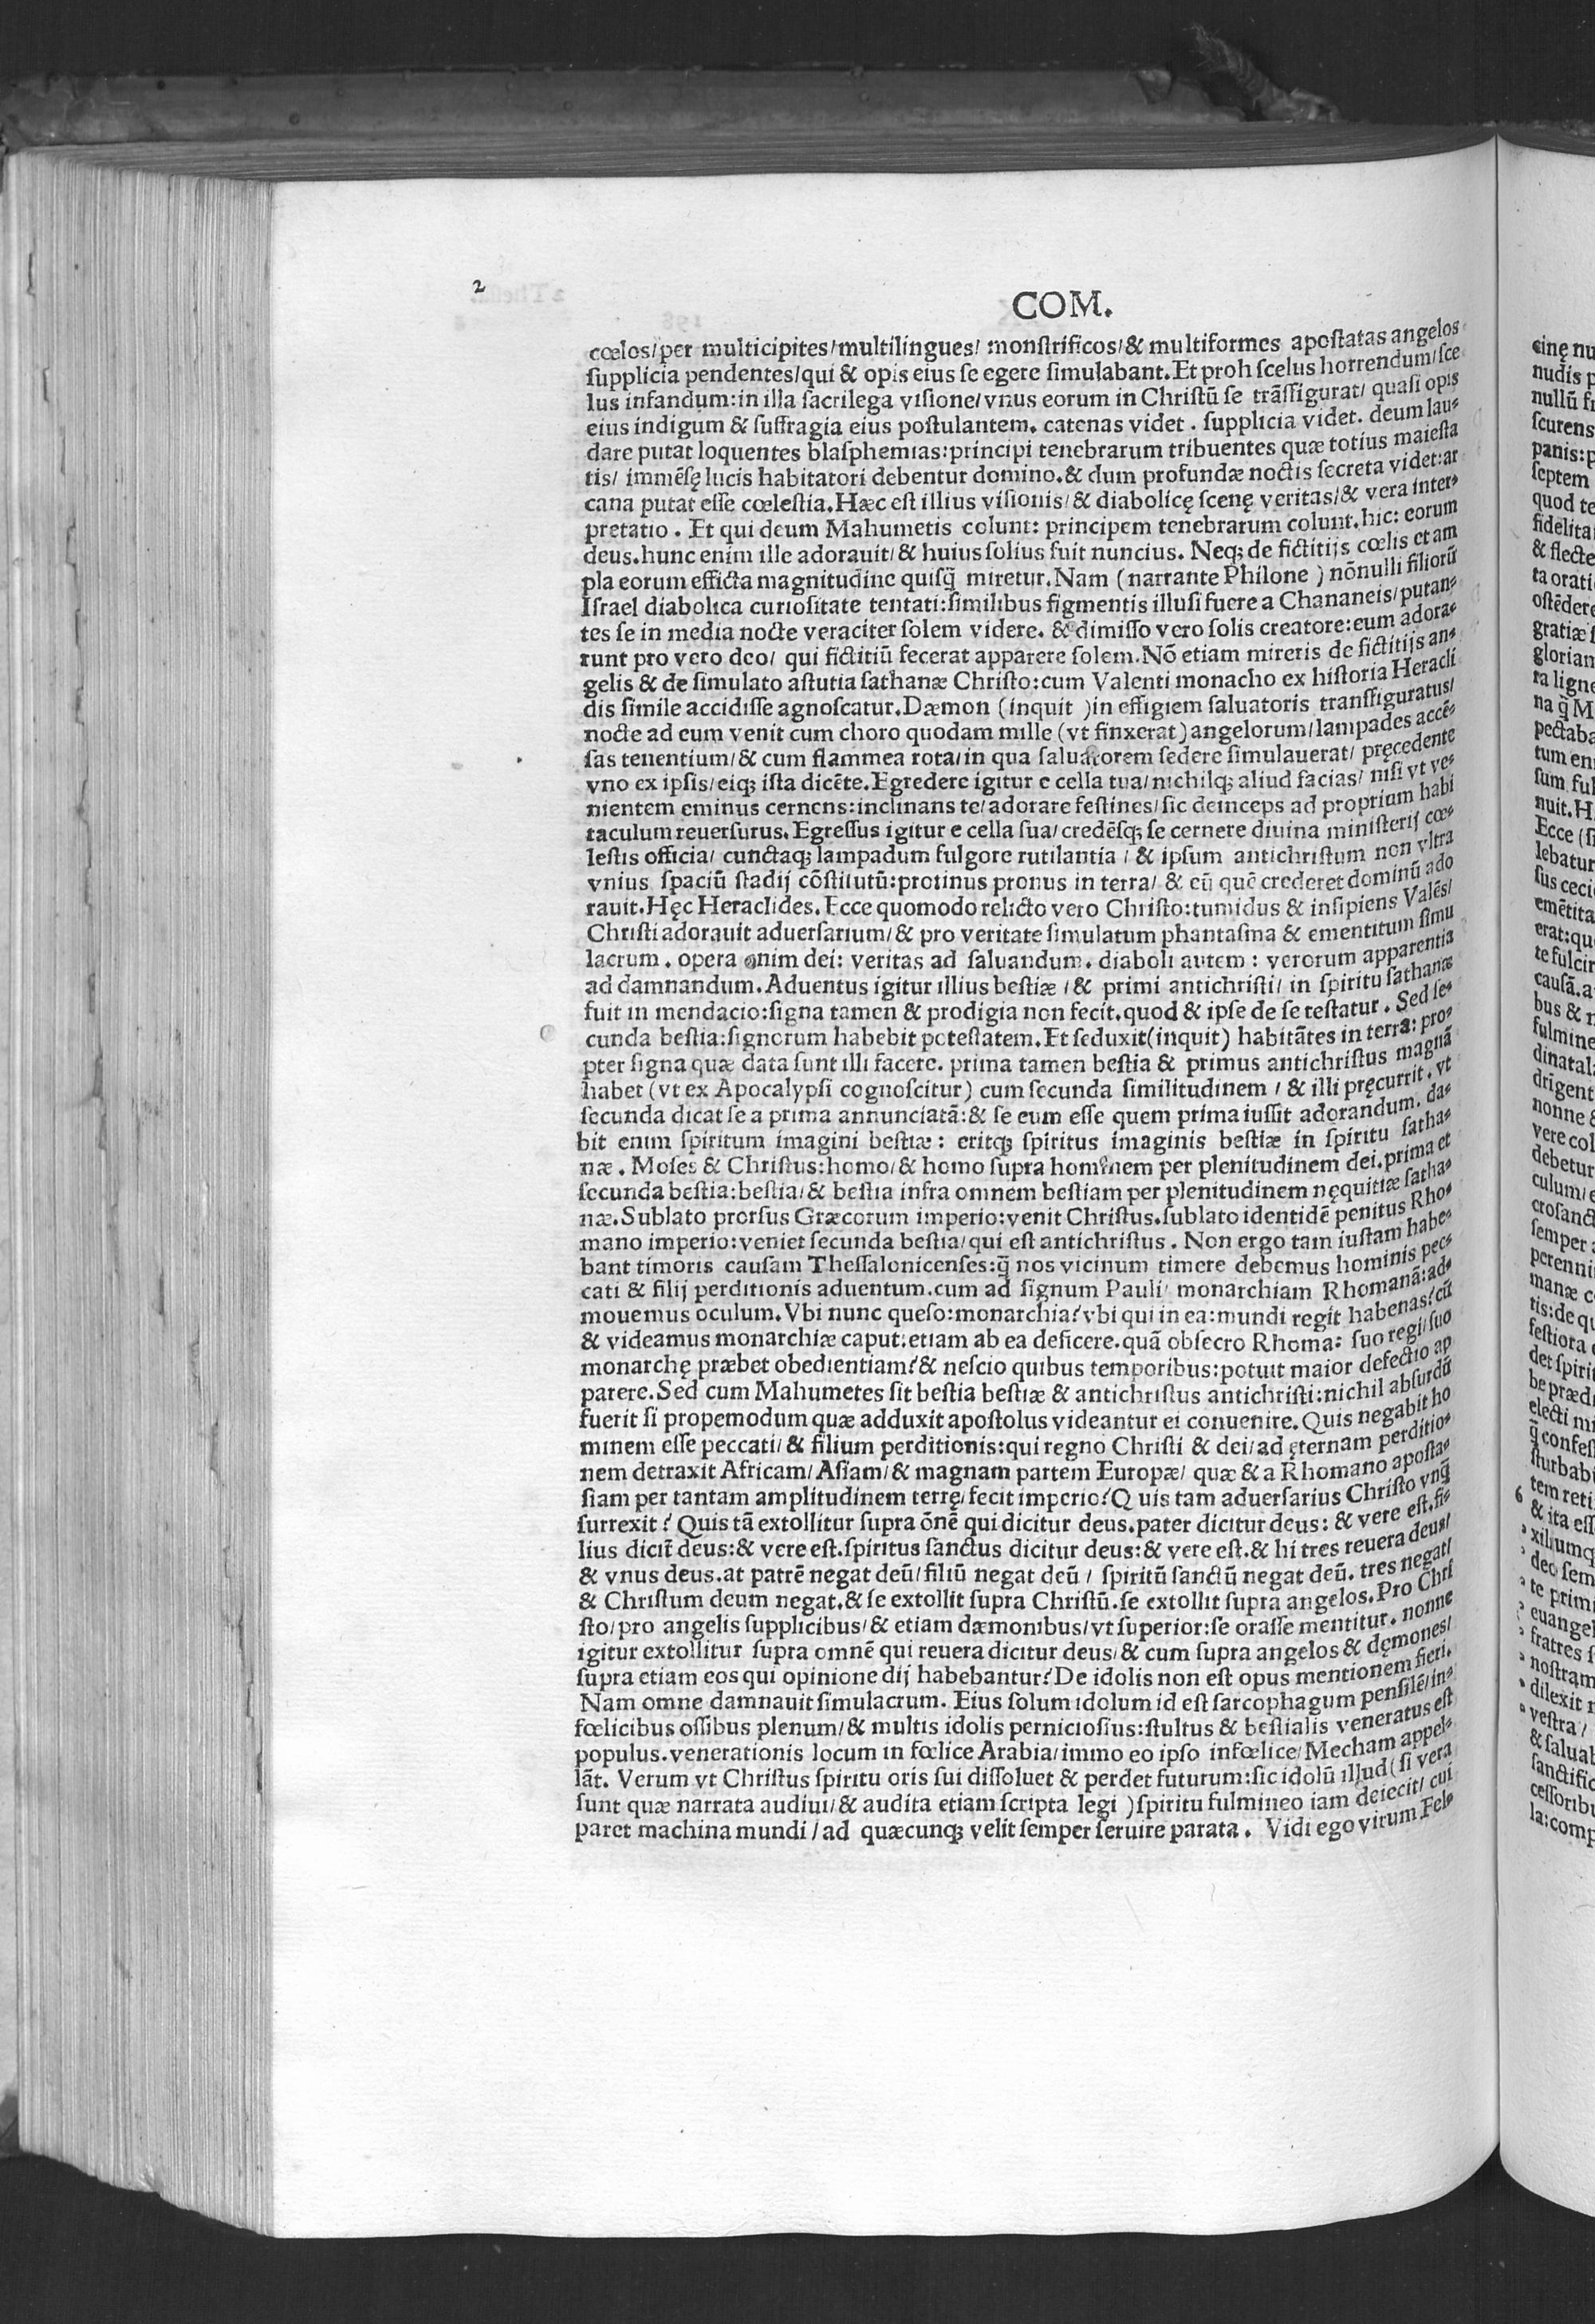 2
COM.
cœlos/per multicipites/multilingues/ monstrificos/& multiformes apostatas angelos
supplicia pendentes/qui & opis eius se egere simulabant.Et proh scelus horrendum/sce
lus infandum:in illa sacrilega visione/vnus eorum in Christū se trāsfigurat/ quasi opis
eius indigum & suffragia eius postulantem. catenas videt . supplicia videt. deum lau-
dare putat loquentes blasphemias:principi tenebrarum tribuentes quæ totius maiesta
tis/ immēsę lucis habitatori debentur domino.& dum profundæ noctis secreta videt:ar
cana putat esse cœlestia.Hæc est illius visionis/& diabolicę scenę veritas/& vera inter-
pretatio . Et qui deum Mahumetis colunt: principem tenebrarum colunt.hic: eorum
deus.hunc enim ille adorauit/& huius solius fuit nuncius. Neq; de fictitijs cœlis et am
pla eorum efficta magnitudine quisq̄ miretur.Nam (narrante Philone ) nōnulli filiorū
Israel diabolica curiositate tentati:similibus figmentis illusi fuere a Chananeis/putan-
tes se in media nocte veraciter solem videre. & dimisso vero solis creatore:eum adora-
runt pro vero deo/ qui fictitiū fecerat apparere solem.Nō etiam mireris de fictitijs an-
gelis & de simulato astutia sathanæ Christo:cum Valenti monacho ex historia Heracli
dis simile accidisse agnoscatur.Dæmon (inquit )in effigiem saluatoris transfiguratus/
nocte ad eum venit cum choro quodam mille (vt finxerat)angelorum/lampades accē-
sas tenentium/& cum flammea rota/in qua saluatorem sedere simulauerat/ pręcedente
vno ex ipsis/eiq; ista dicēte.Egredere igitur e cella tua/nichilq; aliud facias/ nisi vt ve-
nientem eminus cernens:inclinans te/adorare festines/sic deinceps ad proprium habi
taculum reuersurus.Egressus igitur e cella sua/credēsq; se cernere diuina ministerij cœ-
lestis officia/ cunctaq; lampadum fulgore rutilantia / & ipsum antichristum non vltra
vnius spaciū stadij cōstitutū:protinus pronus in terra/ & eū quē crederet dominū ado
rauit.Hęc Heraclides. Ecce quomodo relicto vero Christo:tumidus & insipiens Valēs/
Christi adorauit aduersarium/& pro veritate simulatum phantasma & ementitum simu
lacrum . opera enim dei: veritas ad saluandum. diaboli autem : verorum apparentia
ad damnandum.Aduentus igitur illius bestiæ /& primi antichristi/ in spiritu sathanæ
fuit in mendacio:signa tamen & prodigia non fecit.quod & ipse de se testatur . Sed se-
cunda bestia:signorum habebit potestatem.Et seduxit(inquit) habitātes in terra: pro-
pter signa quæ data sunt illi facere. prima tamen bestia & primus antichristus magnā
habet (vt ex Apocalypsi cognoscitur) cum secunda similitudinem / & illi pręcurrit . vt
secunda dicat se a prima annunciatā:& se eum esse quem prima iussit adorandum. da-
bit enim spiritum imagini bestiæ: eritq; spiritus imaginis bestiæ in spiritu satha-
næ . Moses & Christus:homo/& homo supra hominem per plenitudinem dei.prima et
secunda bestia:bestia/& bestia infra omnem bestiam per plenitudinem nęquitiæ satha-
næ.Sublato prorsus Græcorum imperio:venit Christus.sublato identidē penitus Rho-
mano imperio:veniet secunda bestia/qui est antichristus . Non ergo tam iustam habe-
bant timoris causam Thessalonicenses:q̄ nos vicinum timere debemus hominis pec-
cati & filij perditionis aduentum.cum ad signum Pauli/ monarchiam Rhomanā:ad-
mouemus oculum.Vbi nunc queso:monarchia?vbi qui in ea:mundi regit habenas?cū
& videamus monarchiæ caput:etiam ab ea deficere.quā obsecro Rhoma: suo regi/suo
monarchę præbet obedientiam?& nescio quibus temporibus:potuit maior defectio ap
parere.Sed cum Mahumetes sit bestia bestiæ & antichristus antichristi:nichil absurdū
fuerit si propemodum quæ adduxit apostolus videantur ei conuenire.Quis negabit ho
minem esse peccati/& filium perditionis:qui regno Christi & dei/ad ęternam perditio-
nem detraxit Africam/Asiam/& magnam partem Europæ/ quæ & a Rhomano aposta-
siam per tantam amplitudinem terrę/fecit imperio?Quis tam aduersarius Christo vnq̄
surrexit? Quis tā extollitur supra ōnē qui dicitur deus.pater dicitur deus: & vere est.fi-
lius dicit̄ deus:& vere est.spiritus sanctus dicitur deus:& vere est.& hi tres reuera deus/
& vnus deus.at patrē negat deū/filiū negat deū / spiritū sanctū negat deū. tres negat/
& Christum deum negat.& se extollit supra Christū.se extollit supra angelos.Pro Chri
sto/pro angelis supplicibus/& etiam dæmonibus/vt superior:se orasse mentitur. nonne
igitur extollitur supra omnē qui reuera dicitur deus/& cum supra angelos & dęmones/
supra etiam eos qui opinione dij habebantur?De idolis non est opus mentionem fieri.
Nam omne damnauit simulacrum. Eius solum idolum id est sarcophagum pensilē/in-
fœlicibus ossibus plenum/& multis idolis perniciosius:stultus & bestialis veneratus est
populus.venerationis locum in fœlice Arabia/immo eo ipso infœlice/Mecham appel-
lāt. Verum vt Christus spiritu oris sui dissoluet & perdet futurum:sic idolū illud(si vera
sunt quæ narrata audiui/& audita etiam scripta legi )spiritu fulmineo iam deiecit/ cui
paret machina mundi/ad quæcunq; velit semper seruire parata. Vidi ego virum Fel-